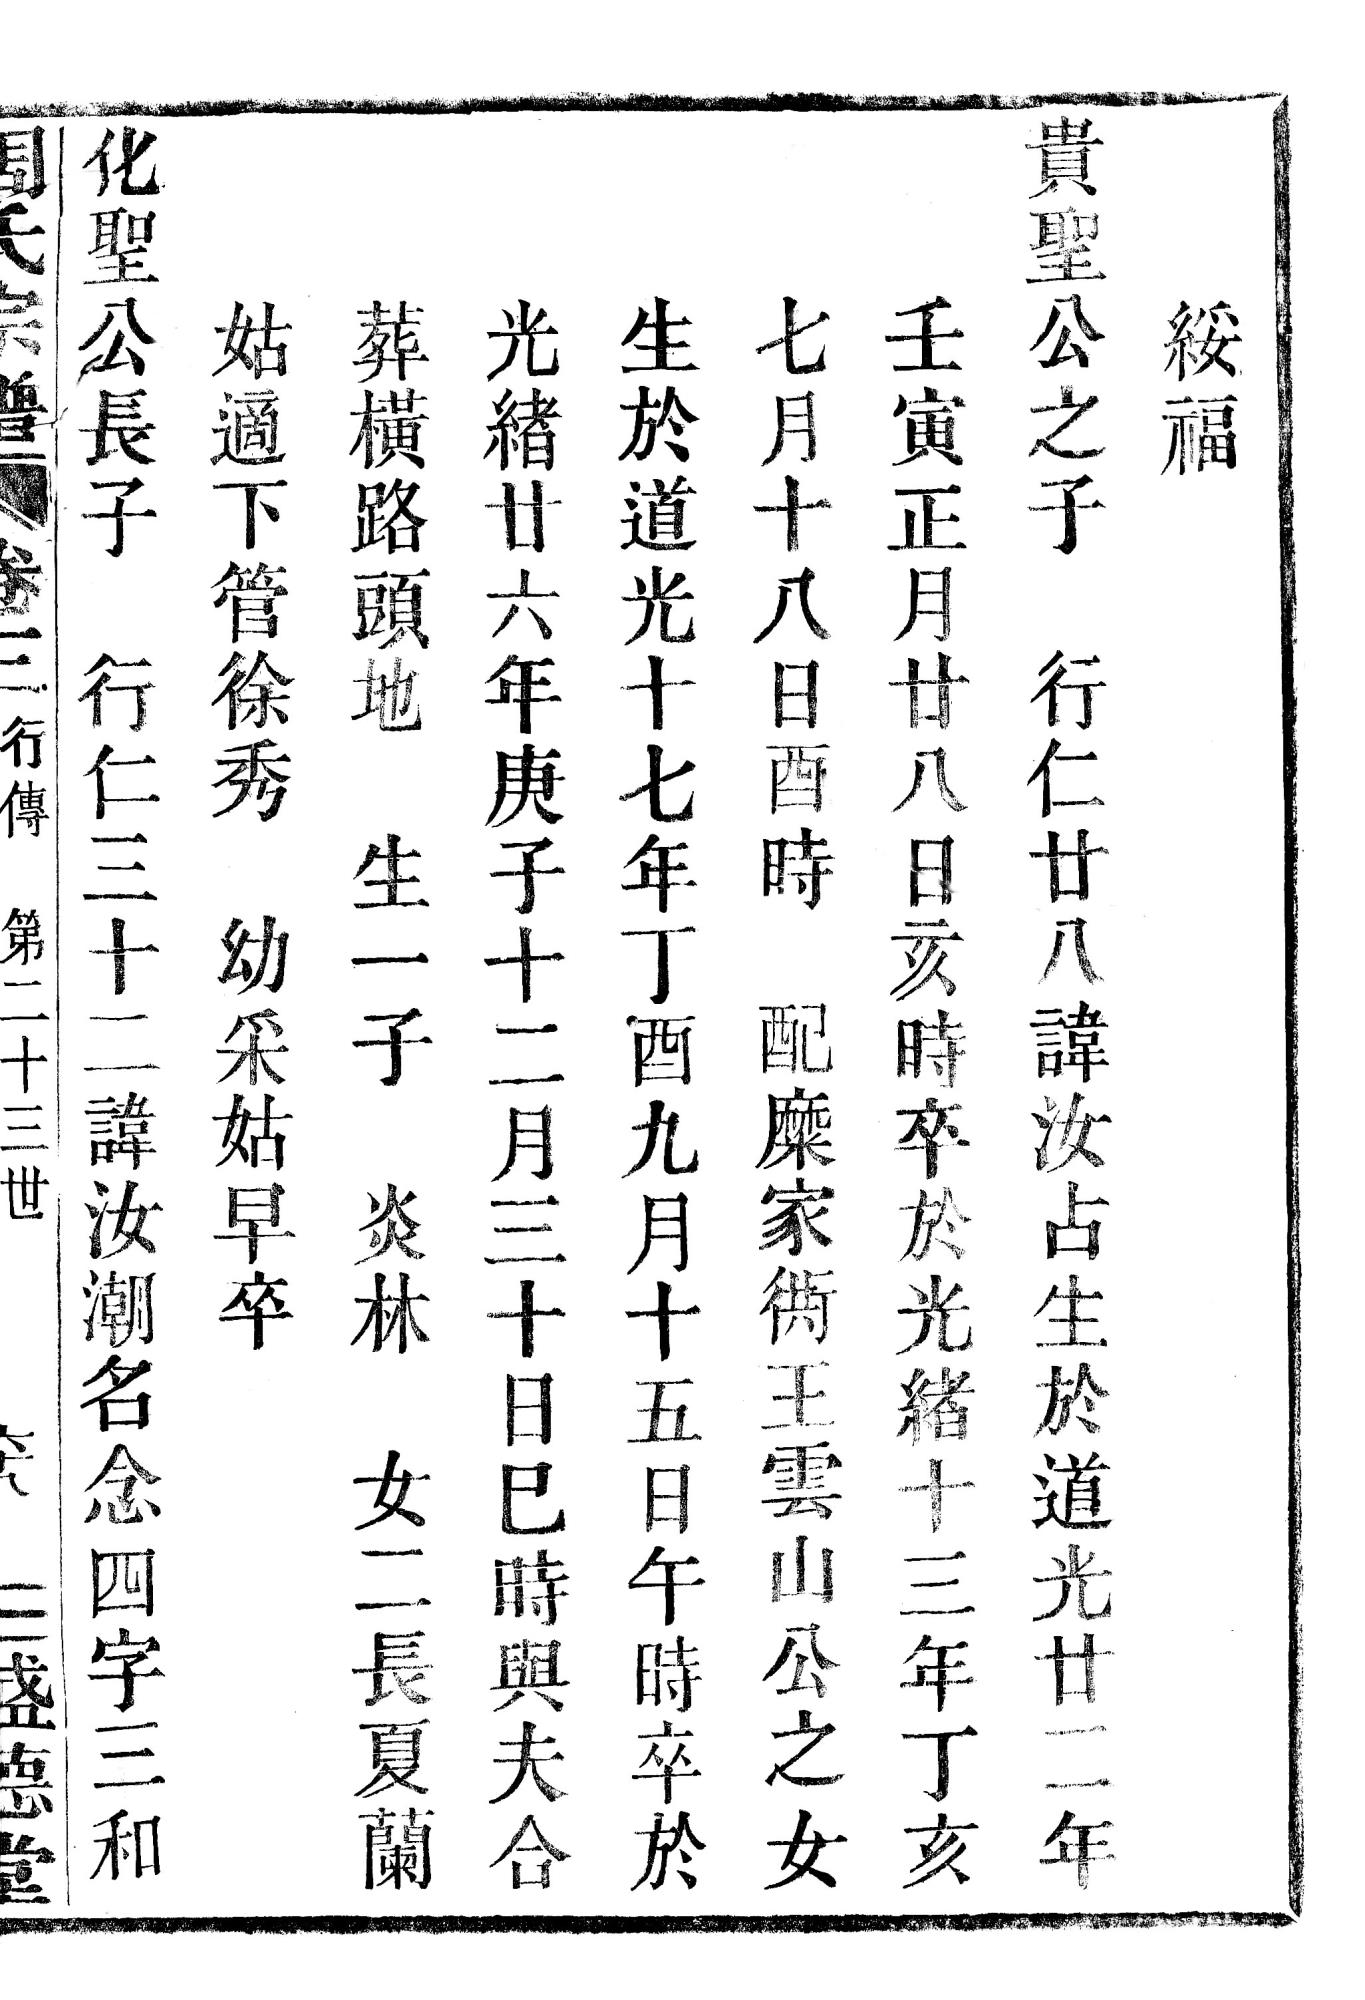 綏福
貴聖公之子　行仁廿八諱汝占生於道光廿二年
壬寅正月廿八日亥時卒於光緒十三年丁亥
七月十八日酉時　配糜家衖王雲山公之女
生於道光十七年丁酉九月十五日午時卒於
光緒廿六年庚子十二月三十日巳時與夫合
葬橫路頭地　生一子　炎林　女二長夏蘭
姑適下管徐秀　幼采姑早卒
化聖公長子　行仁三十二諱汝潮名念四字三和
周氏宗譜　卷二行傳　第二十三世　三盛德堂